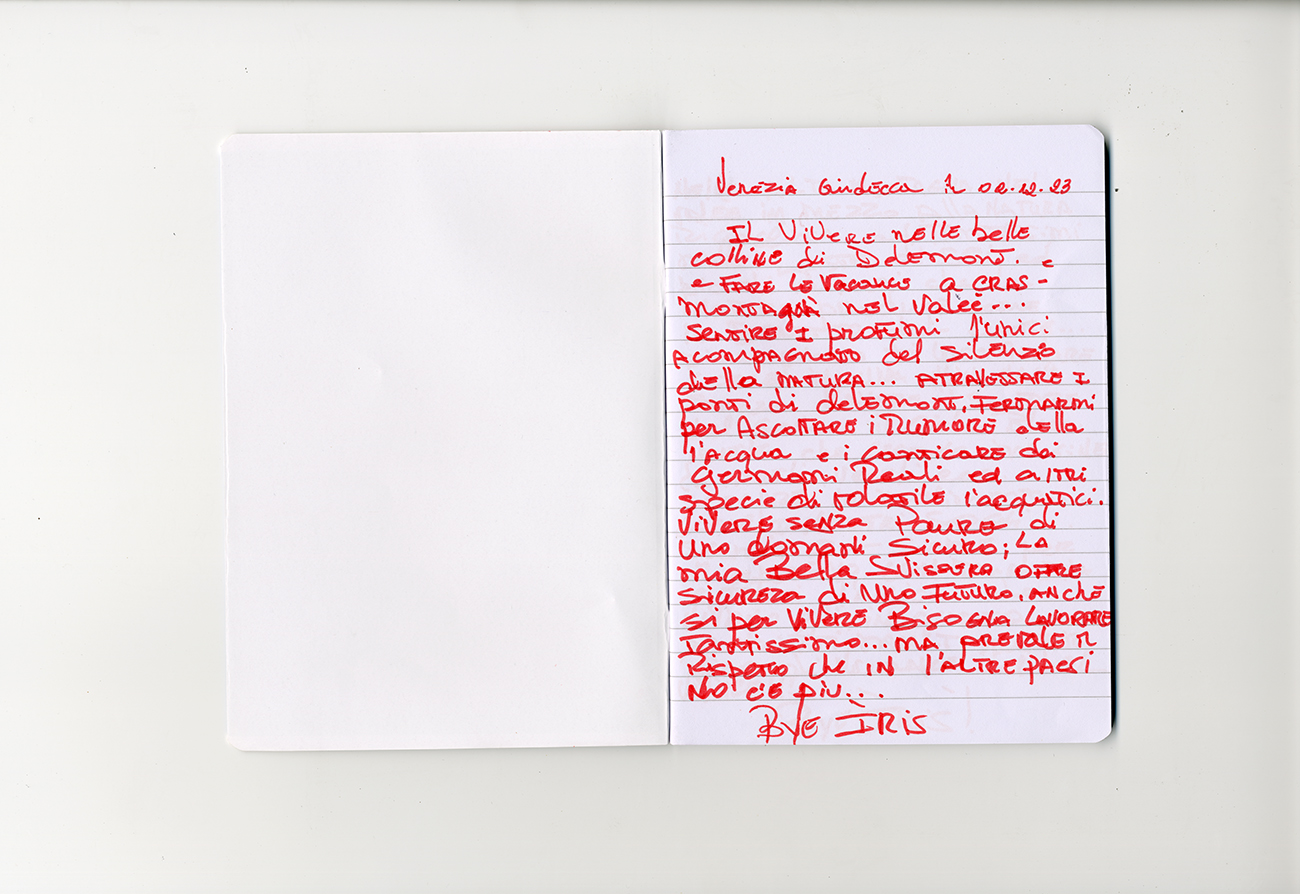 Venezia Giudecca il 02.12.23
IL ViVere nelle belle
colline di Delemont. e
e FARE le Vacance a CRAS-
MONTAgnA nel Valèe...
SENTIRE I profumi l'unici
ACOMPAGNATO del SilENZio
della NATURA... ATRAVESSARE I
ponti di delemont, FERMARMI
per AScolTARE i RuMORE della
l'Acqua e i canticare dei
Germani Reali ed altri
specie di volatile l'acquatici.
ViVere senza Paure di
Uno domani Sicuro; LA
mia Bella SviszerA OFFRE
SicuREzA di UNO FuTuRo. ANCHE
si per ViVERE Bisogna LAVORARE
Tantissimo... MA PREVALE il
Rispetto che IN l'ALTRE paesi
No c'è più...
BYE ÌRiS